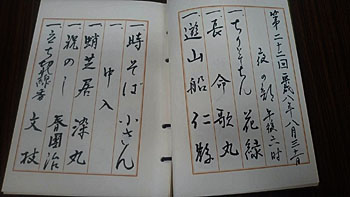 第二十二回 平成八年八月三十一日
夜の部 午後六時
一 ちりとてちん 花緑
一 長命 歌丸
一 遊山船 仁鶴
一 時そば 小さん
一、 中入
一 蛸芝居 染丸
一 祝のし 春団治
一 立ち切線香 文枝